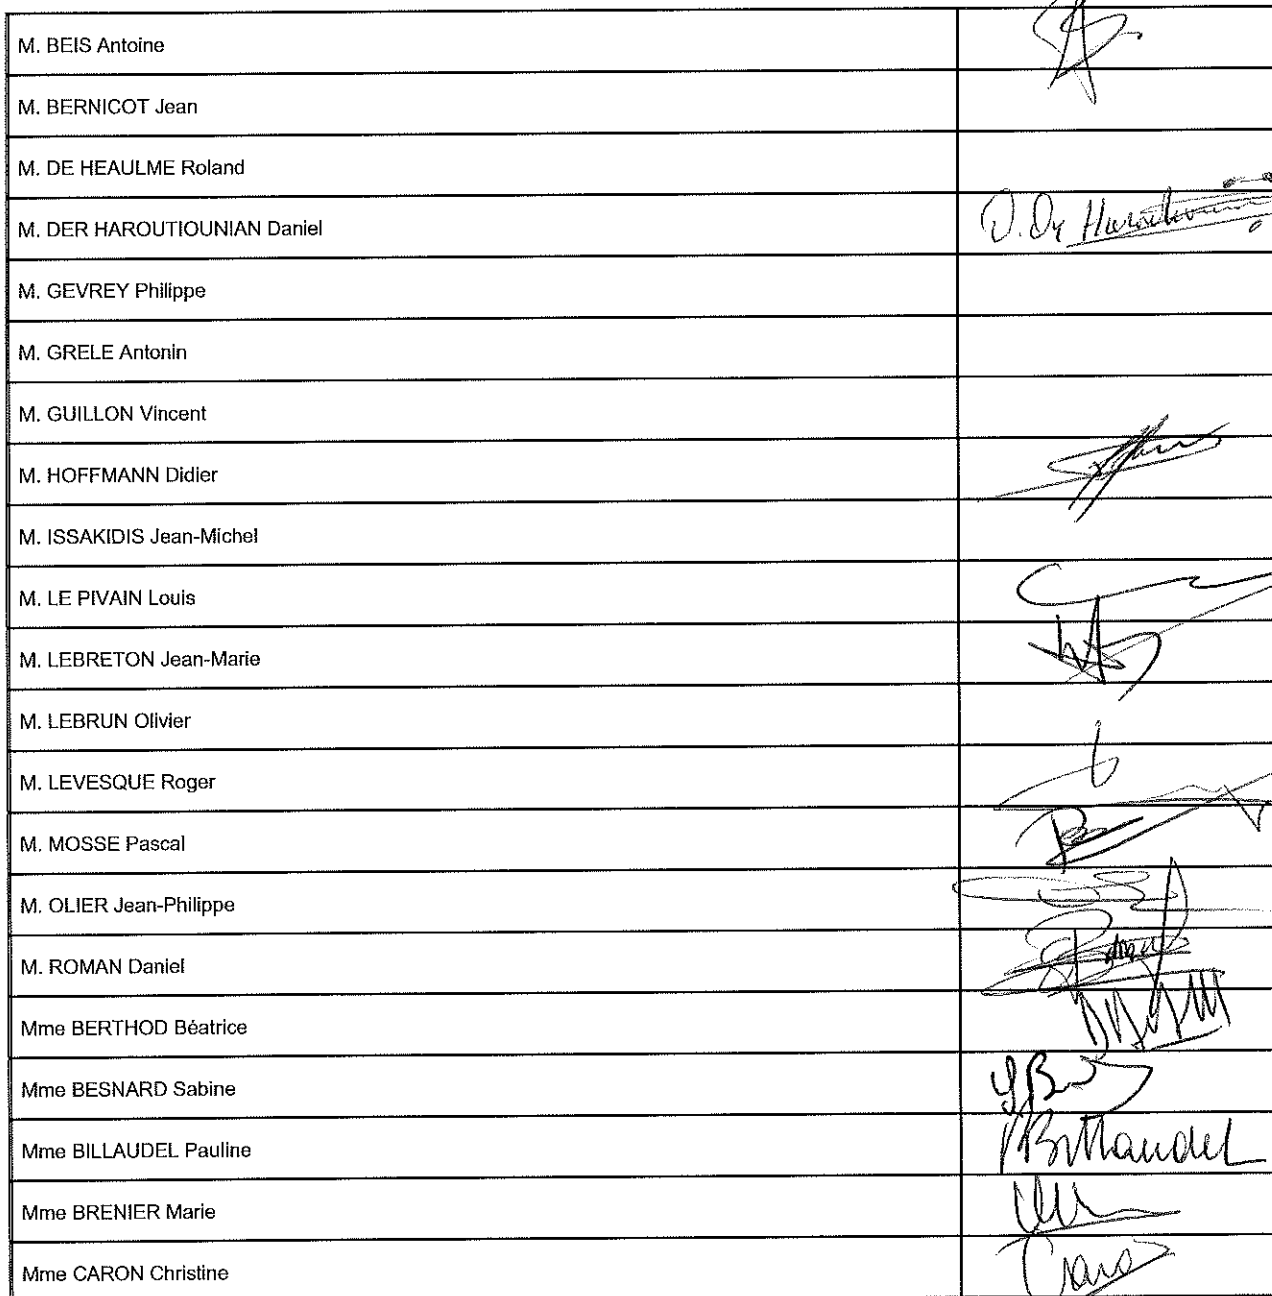 M. BEIS Antoine
M. BERNICOT Jean
M. DE HEAULME Roland
M. DER HAROUTIOUNIAN Daniel
M. GEVREY Philippe
M. GRELE Antonin
M. GUILLON Vincent
M. HOFFMANN Didier
M. ISSAKIDIS Jean-Michel
M. LE PIVAIN Louis
M. LEBRETON Jean-Marie
M. LEBRUN Olivier
M. LEVESQUE Roger
M. MOSSE Pascal
M. OLIER Jean-Philippe
M. ROMAN Daniel
Mme BERTHOD Béatrice
Mme BESNARD Sabine
Mme BILLAUDEL Pauline PBillaudel
Mme BRENIER Marie
Mme CARON Christine